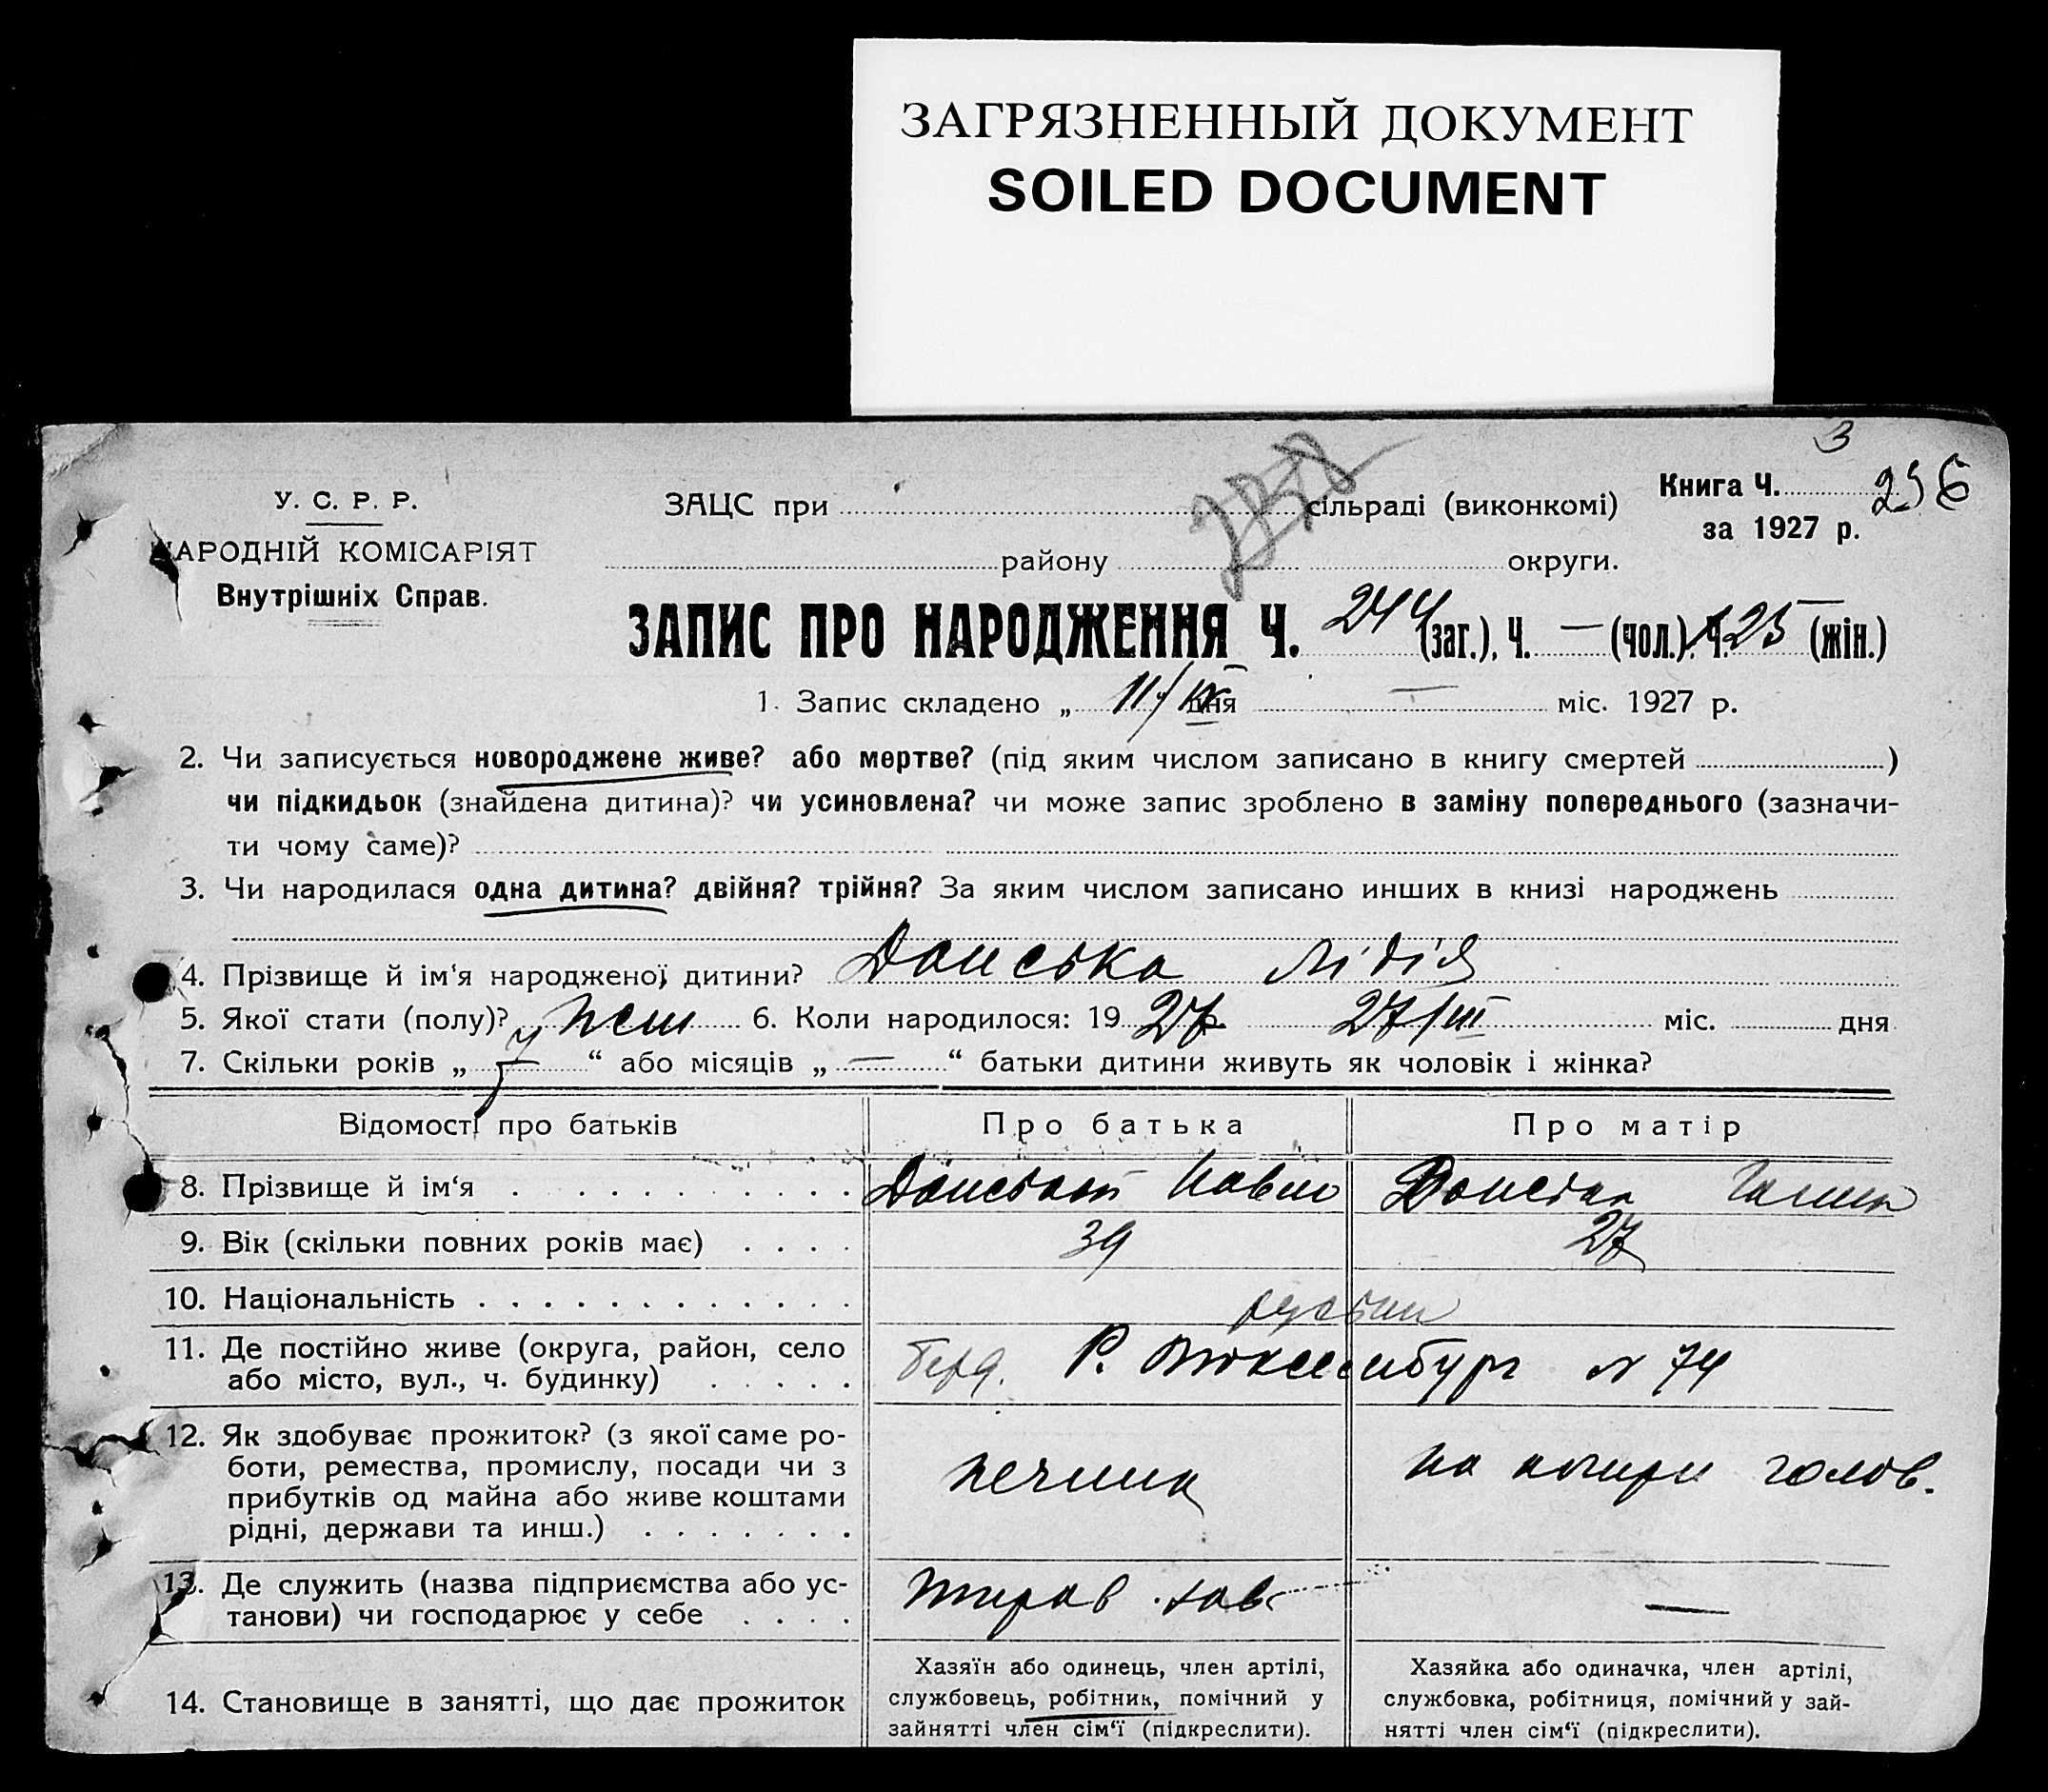 ЗАГРЯЗНЕННЫЙ ДОКУМЕНТ
SOILED DOCUMENT
3
У. С. Р. Р.
НАРОДНІЙ КОМІСАРІЯТ
Внутрішніх Справ.
ЗАЦС при сільраді (виконкомі)
району округи.
Книга Ч. 256
за 1927 р.
ЗАПИС ПРО НАРОДЖЕННЯ Ч. 244 (заг.), Ч. — (чол.), Ч. 125 (жін.)
1. Запис складено „ 11/IX дня — міс. 1927 р.
2. Чи записується новороджене живе? або мертве? (під яким числом записано в книгу смертей )
чи підкидьок (знайдена дитина)? чи усиновлена? чи може запис зроблено в заміну попереднього (зазначи-
ти чому саме)?
3. Чи народилася одна дитина? двійня? трійня? За яким числом записано инших в книзі народжень
4. Прізвище й ім‘я народженої дитини? Донська Лідія
5. Якої стати (полу)? жен 6. Коли народилося: 19 27р. 27/III міс. дня
7. Скільки років „ 7 “ або місяців „ — “ батьки дитини живуть як чоловік і жінка?
Відомості про батьків Про батька Про матір
8. Прізвище й ім‘я Донський Павло Донская Галина
9. Вік (скільки повних років має) 39 27
10. Національність
11. Де постійно живе (округа, район, село
або місто, вул., ч. будинку) Берд. Р. Люксембург № 74
12. Як здобуває прожиток? (з якої саме ро-
боти, ремества, промислу, посади чи з
прибутків од майна або живе коштами
рідні, держави та инш.) голов.
13. Де служить (назва підприємства або ус-
танови) чи господарює у себе зав. —
14. Становище в занятті, що дає прожиток
Хазяїн або одинець, член артілі,
службовець, робітник, помічний у
зайнятті член сім‘ї (підкреслити).
Хазяйка або одиначка, член артілі,
службовка, робітниця, помічний у зай-
нятті член сім‘ї (підкреслити).